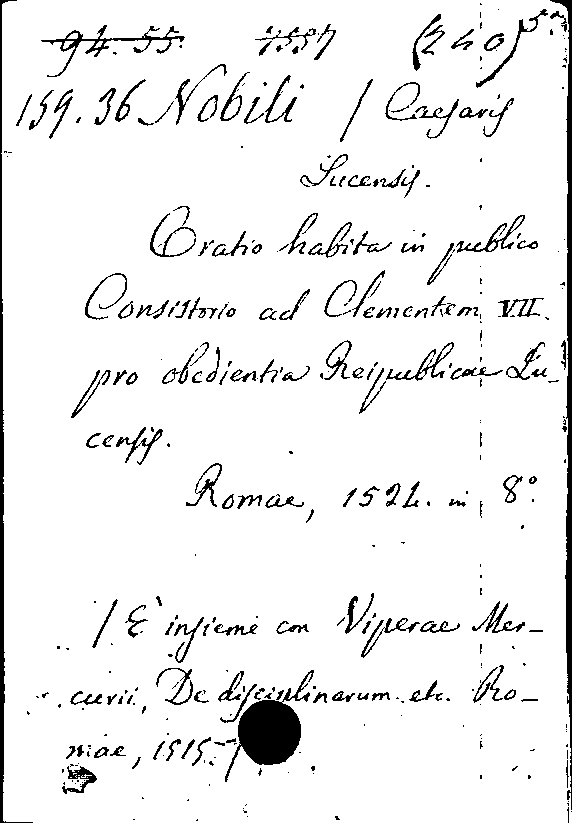 94. 55. 7557 (240) 5ª
159.36 Nobili / Caesaris
Lucensis.
Oratio habita in publico
Consistorio ad Clementem VII.
pro obedientia Reipublicae Lu-
censis.
Romae, 1524. in 8º.
/ È insieme con Viperae Mer-
curii, De disciplinarum etc. Ro-
mae, 1515. /